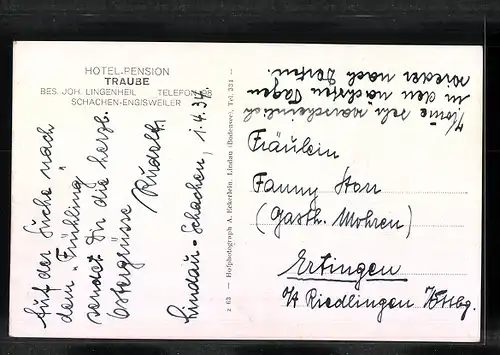 HOTEL-PENSION
TRAUBE
BES. JOH. LINGENHEIL TELEFON
SCHACHEN-ENGISWEILER
Auf der Suche nach
dem „Frühling"
sendet Dir die herzl.
Ostergrüsse
Rudolf.
Lindau-Schachen, 1.4.34
z 63 — Hofphotograph A. Eckerlein, Lindau (Bodensee), Tel. 331 —
sehr warscheinlich
in den nächsten Tagen
wieder nach
Fräulein
Fanny
(Gasth. Mohren)
Ertingen
b/ Riedlingen Wttbg.